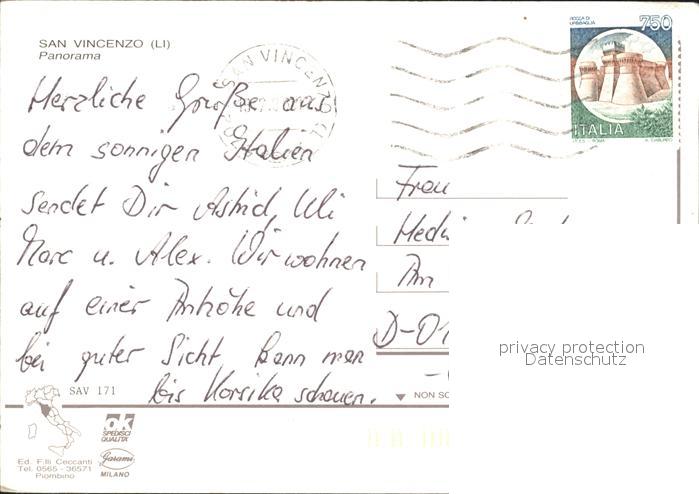 SAN VINCENZO (LI)
Panorama
SAN VINCENZO
ROCCA DI
URBISAGLIA
750
ITALIA
Herzliche Grüße aus
dem sonnigen Italien
sendet Dir Astrid, Uli
Marc u. Alex. Wir wohnen
auf einer Anhöhe und
bei guter Sicht kann man
bis Korsika schauen.
Frau
Am
D-01
privacy protection
Datenschutz
SAV 171
NON SC
ok
SPEDISCI
QUALITÀ
Garami
MILANO
Ed. F.lli Ceccanti
Tel. 0565 - 36571
Piombino